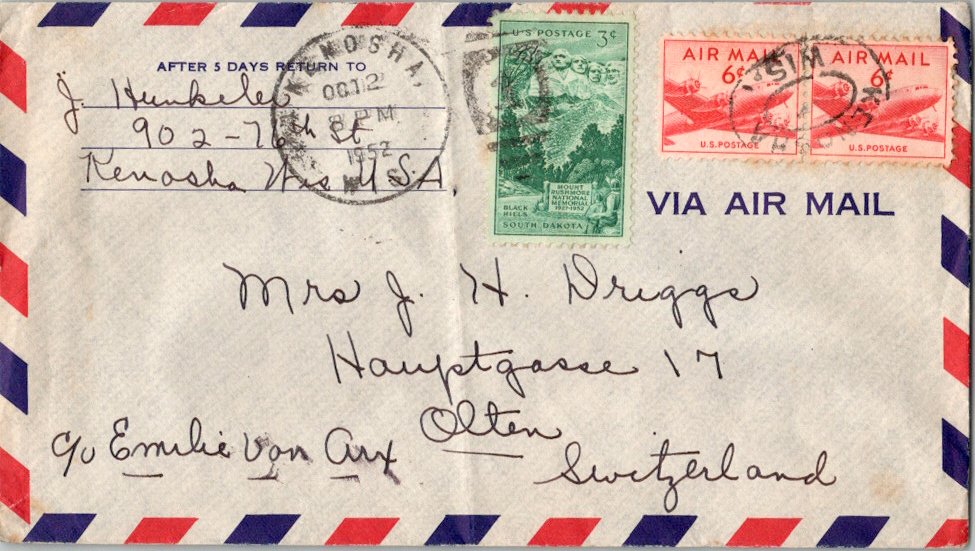 AFTER 5 DAYS RETURN TO
J. Hunkeler
902-76th St
Kenosha Wis U.S.A.
KENOSHA,
OCT 12
8 PM
1952
WIS
U.S. POSTAGE 3¢
MOUNT
RUSHMORE
NATIONAL
MEMORIAL
1927-1952
BLACK
HILLS
SOUTH DAKOTA
AIR MAIL
6¢
U.S. POSTAGE
AIR MAIL
6¢
U.S. POSTAGE
KENOSHA WIS.
VIA AIR MAIL
Mrs J. H. Driggs
Hauptgasse 17
Olten
c/o Emilie Von Arx
Switzerland